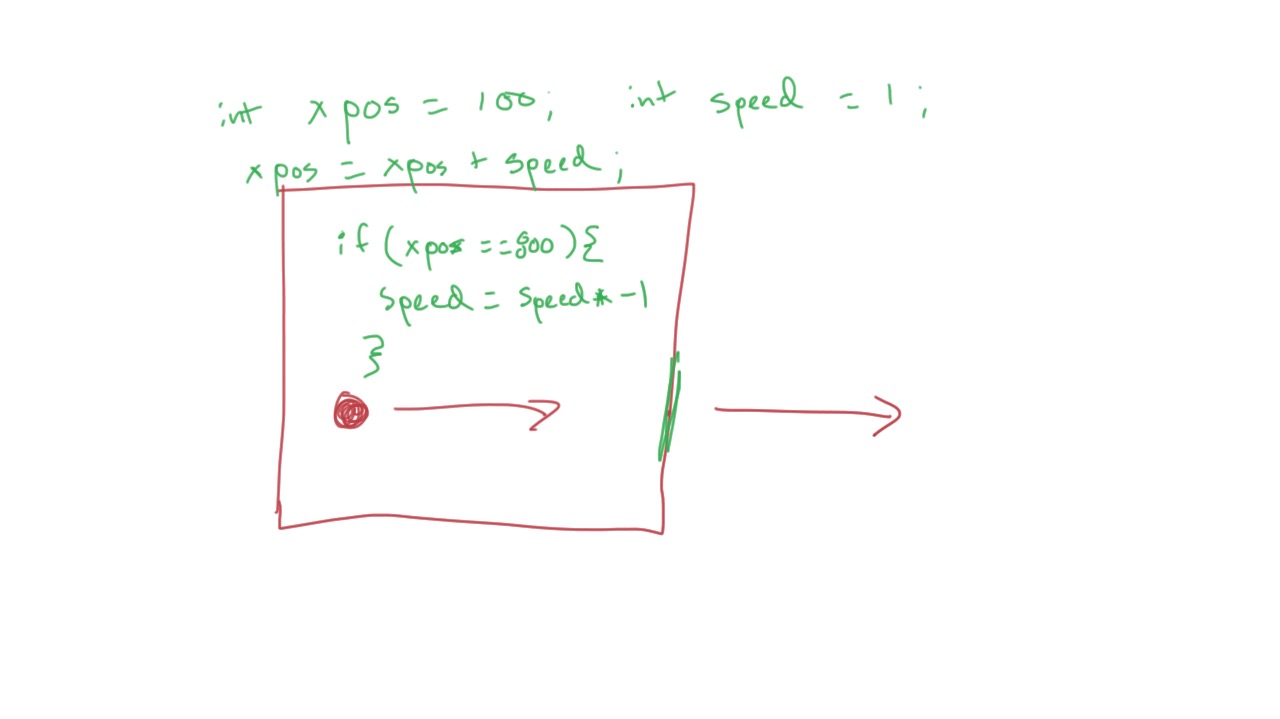 int xpos = 100; int speed = 1;
xpos = xpos + speed;
if (xpos == 800) {
speed = speed * -1
}